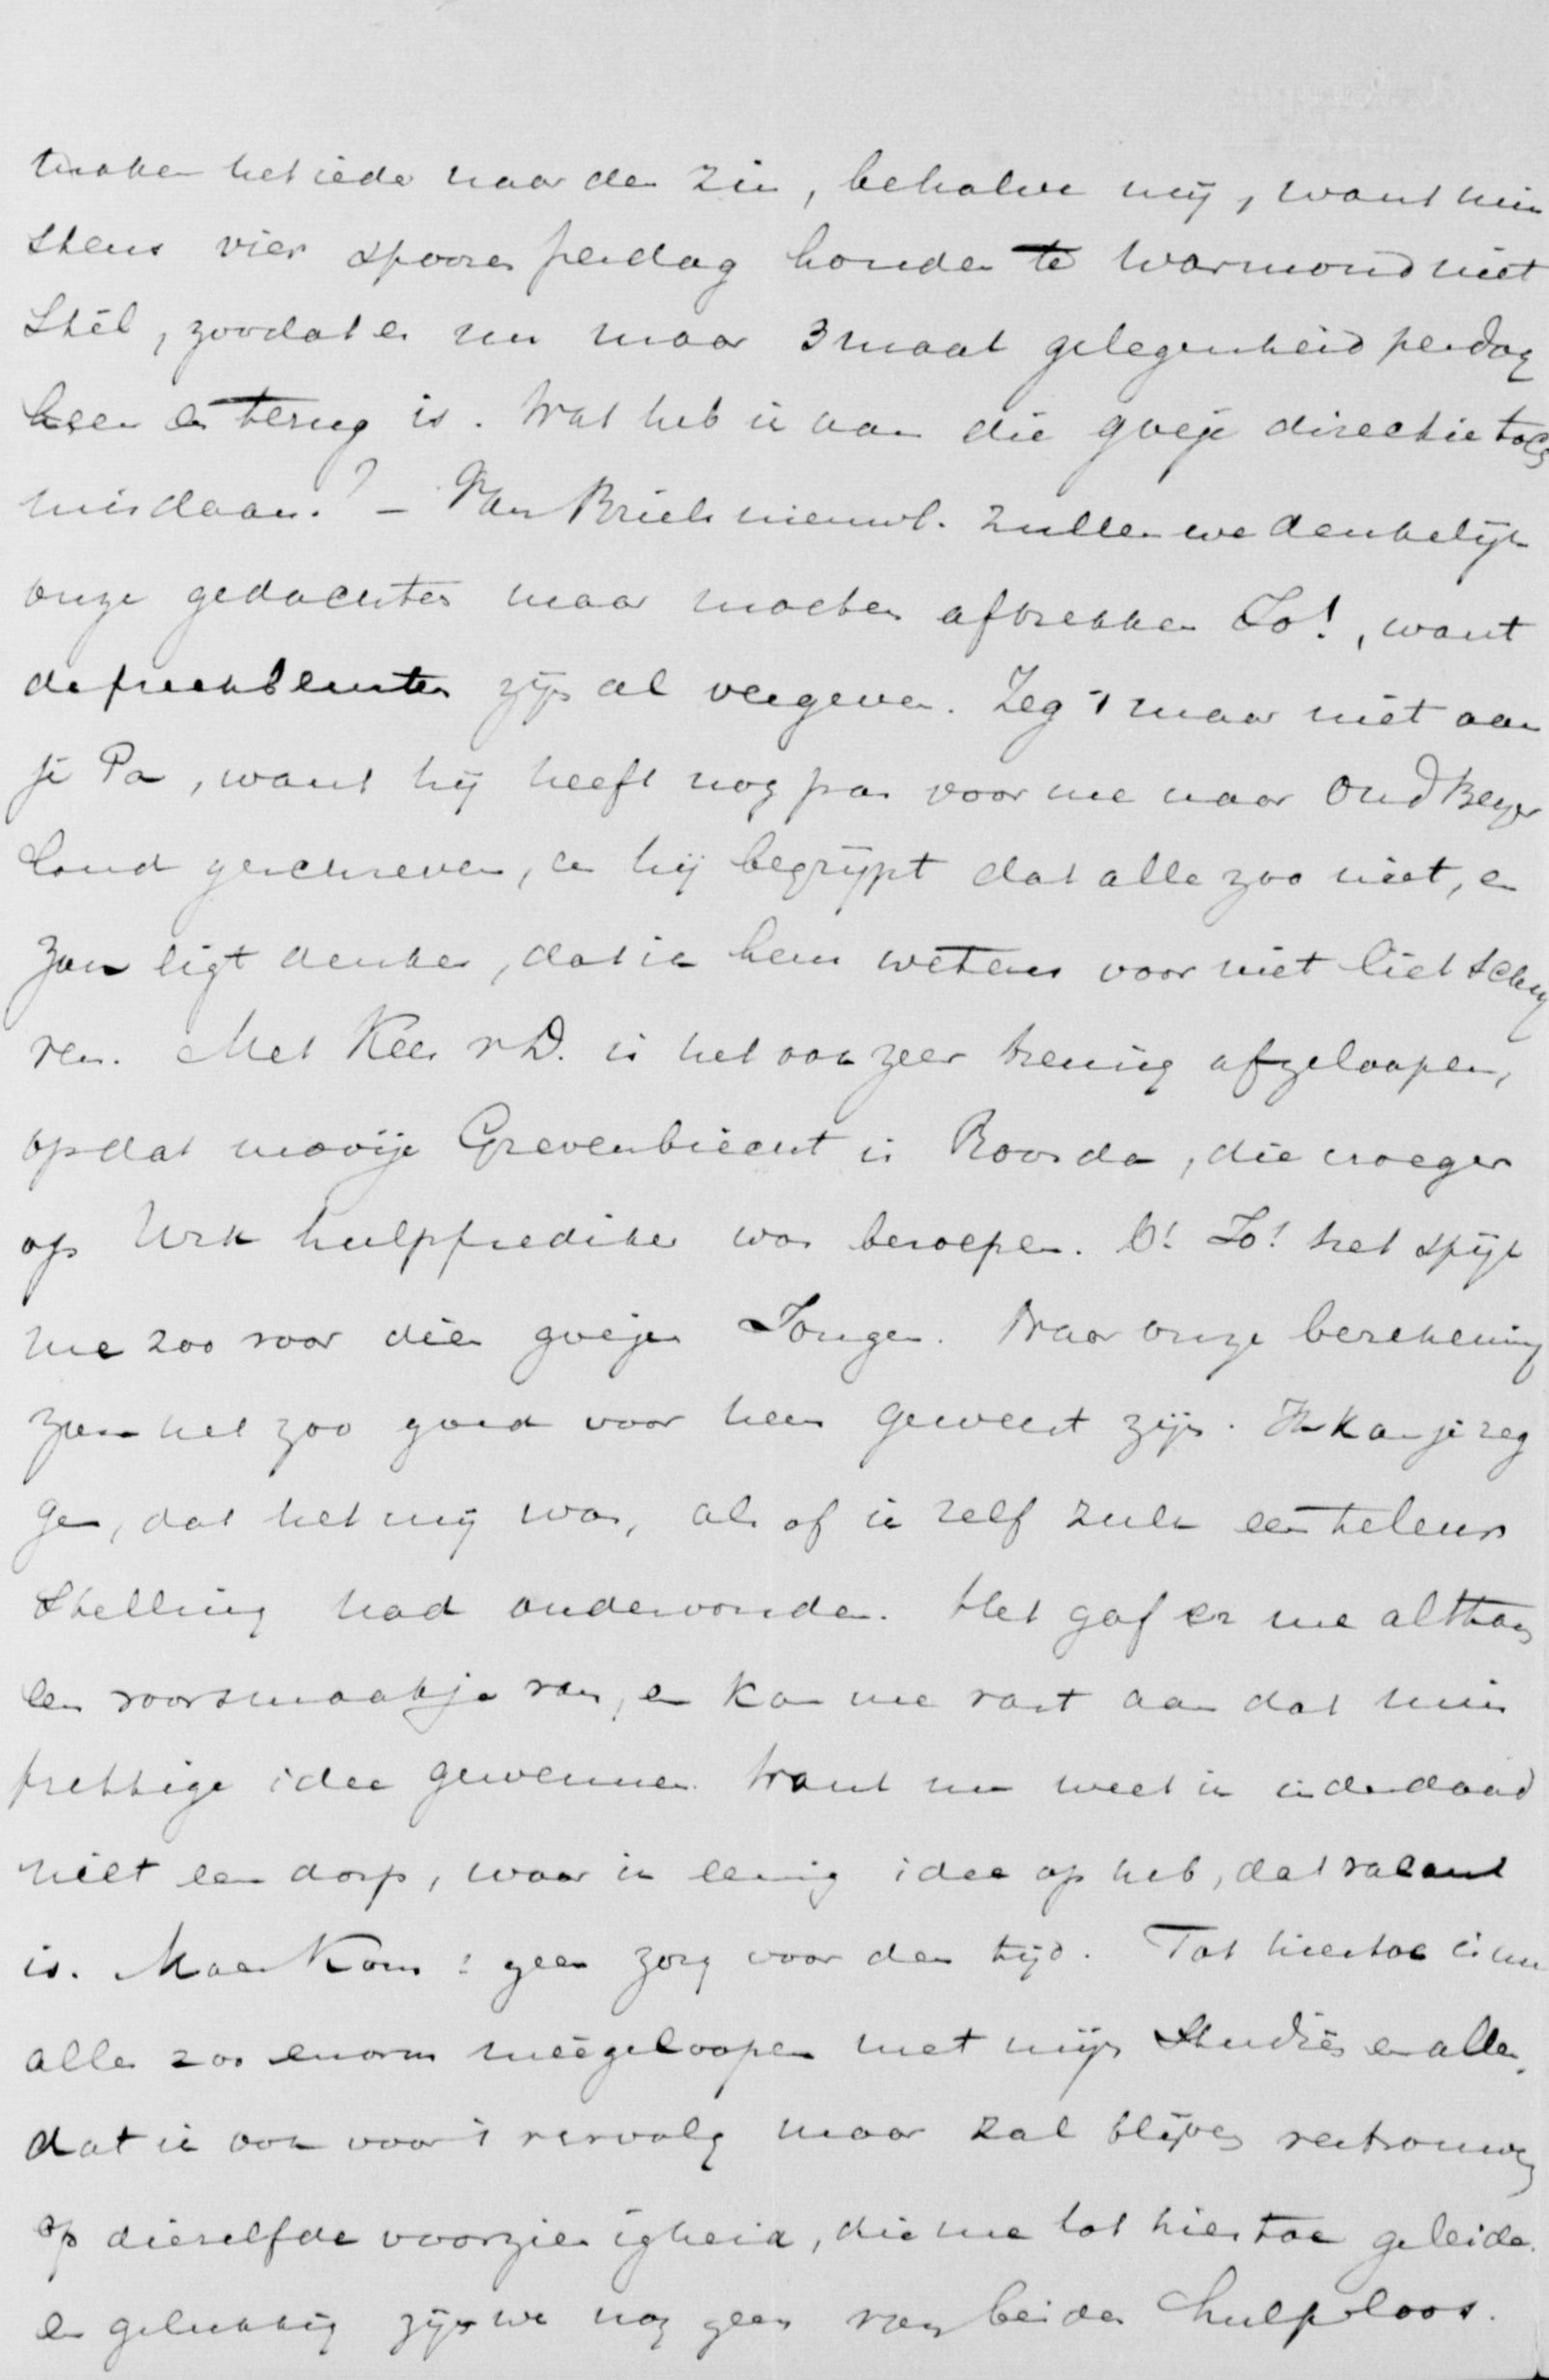 maken het ieder naar den zin, behalve mij, want min
stens vier sporen per dag houden te Warmond niet
stil, zoodat er nu maar 3 maal gelegenheid per dag
heen en terug is. Wat heb ik aan die goeje directie toch
misdaan? – Van Briels nieuwl. zullen we denkelijk
onze gedachten maar moeten aftrekken Jo!, want
de predikbeurten zijn al vergeven. Zeg 't maar niet aan
je Pa, want hij heeft nog pas voor me naar Oud Beyer
land geschreven, en hij begrijpt dat alles zoo niet, en
zou ligt denken, dat ik hem wetens voor niet liet schrij
ven. Met Kees v D. is het ook zeer treurig afgeloopen,
op dat mooije Grevenbicht is Roorda, die vroeger
op Urk hulpprediker was beroepen. O! Jo! het spijt
me zoo voor dien goejen Jongen. Naar onze berekening
zou het zoo goed voor hem geweest zijn. Ik kan je zeg
gen, dat het mij was, als of ik zelf zulk een teleur
stelling had ondervonden. Het gaf er me althans
een voorsmaakje van, en kan me vast aan dat min
prettige idee gewennen. Want nu weet ik inderdaad
niet een dorp, waar ik eenig idee op heb, dat vacant
is. Maar Kom: geen zorg voor den tijd. Tot hiertoe is me
alles zoo enorm meêgeloopen met mijn Studies en alles,
dat ik ook voor 't vervolg maar zal blijven vertrouwen
op diezelfde voorzienigheid, die me tot hiertoe geleidde.
en gelukkig zijn we nog geen van beiden hulploos.